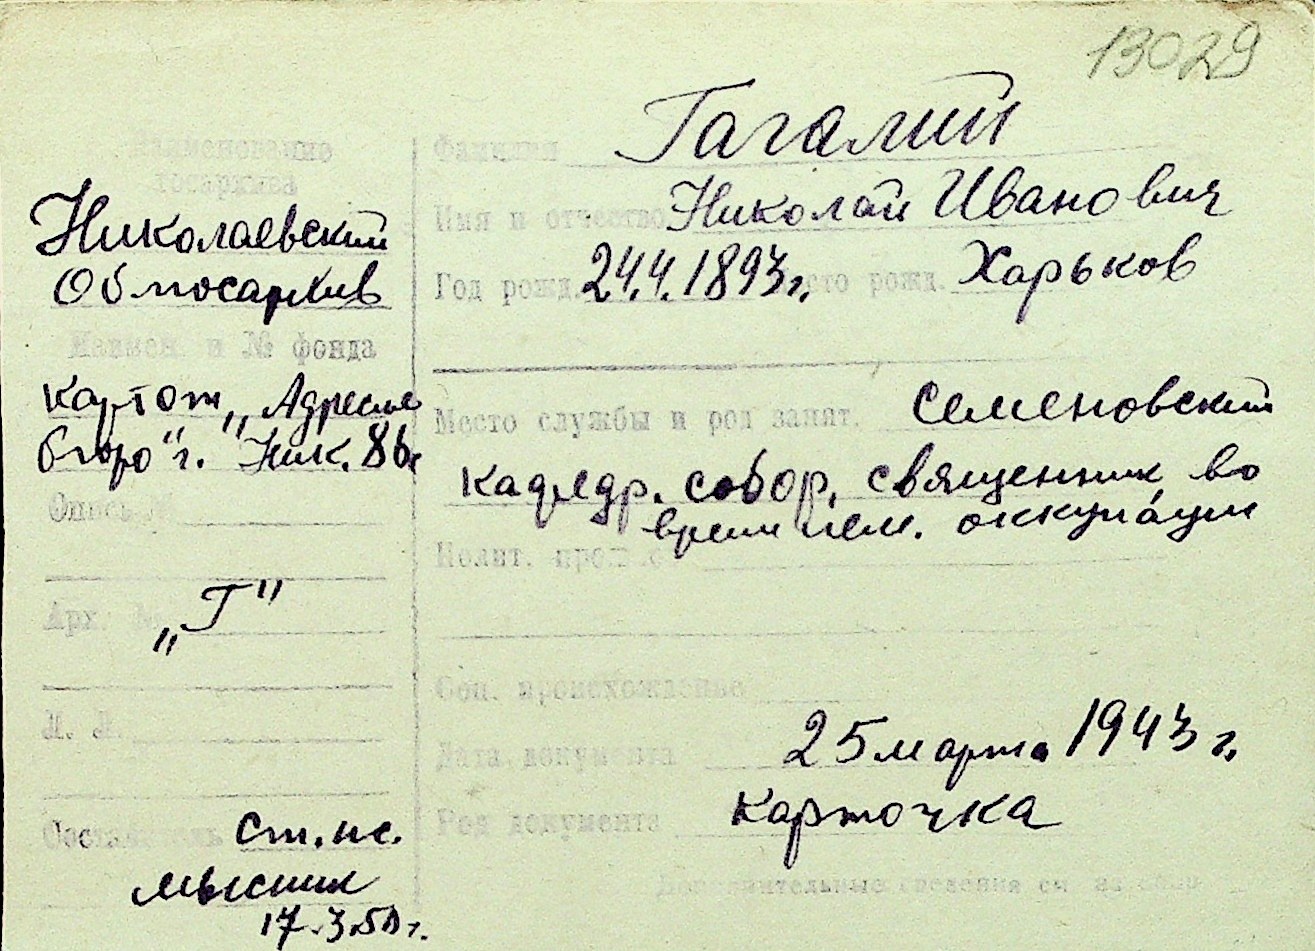 13029
Наименование
госархива
Николаевский
Облгосархив
Наимен. и № фонда
Картот. „Адресное
бюро" г. Ник. 86
Опись №
Арх. №
„Г"
Л. Л.
Составитель ст. нс.
мысник
17.3.50 г.
Фамилия Гагалий
Имя и отчество Николай Иванович
Год рожд. 24.4.1893 г. Место рожд. Харьков
Место службы и род занят. Семеновский
кафедр. собор, священник во
время нем. оккупации
Полит. прошлое
Соц. происхождение
Дата документа 25 марта 1943 г.
Род документа карточка
Дополнительные сведения см. на обор.